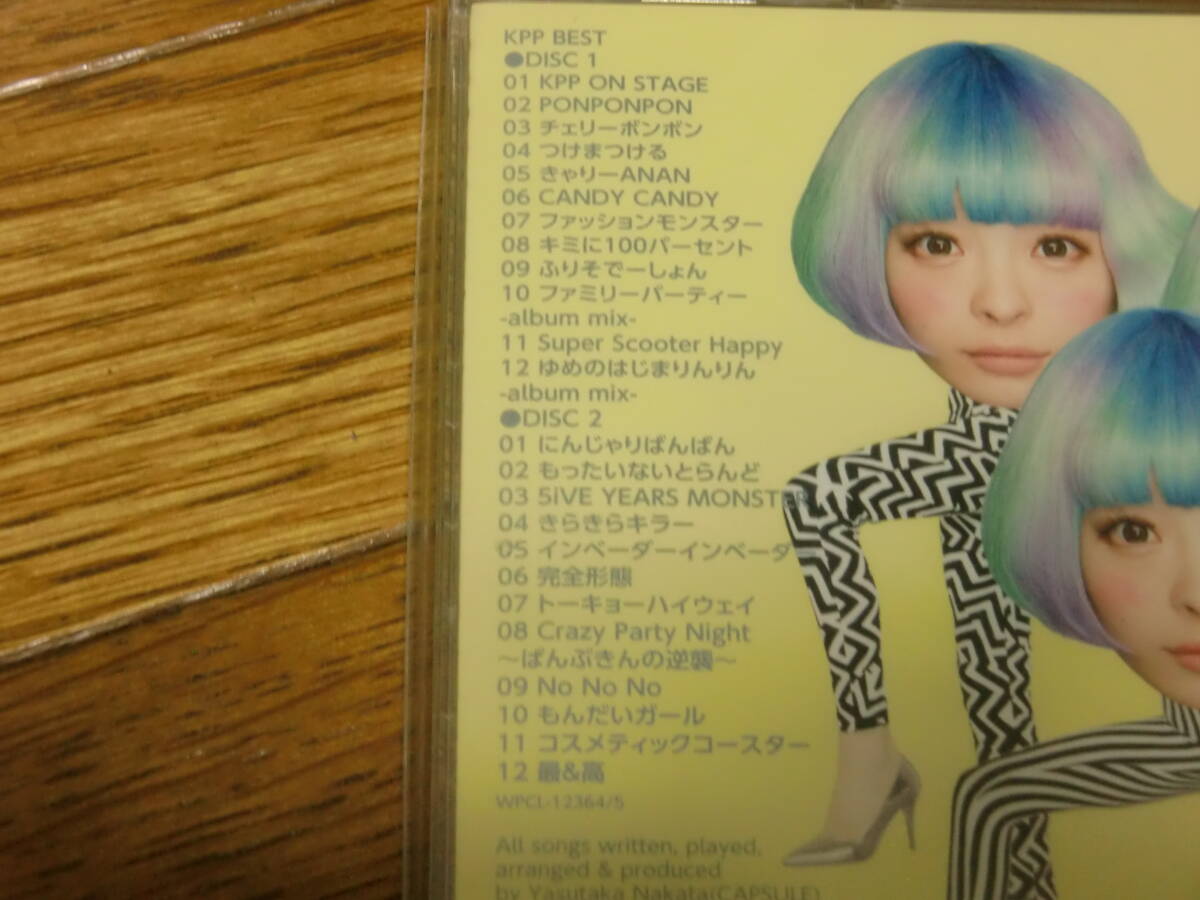 KPP BEST
●DISC 1
01 KPP ON STAGE
02 PONPONPON
03 チェリーボンボン
04 つけまつける
05 きゃりーANAN
06 CANDY CANDY
07 ファッションモンスター
08 キミに100パーセント
09 ふりそでーしょん
10 ファミリーパーティー
-album mix-
11 Super Scooter Happy
12 ゆめのはじまりんりん
-album mix-
●DISC 2
01 にんじゃりばんばん
02 もったいないとらんど
03 5iVE YEARS MONSTER
04 きらきらキラー
05 インベーダーインベーダー
06 完全形態
07 トーキョーハイウェイ
08 Crazy Party Night
～ぱんぷきんの逆襲～
09 No No No
10 もんだいガール
11 コスメティックコースター
12 最&高
WPCL-12364/5
All songs written, played,
arranged & produced
by Yasutaka Nakata(CAPSULE)